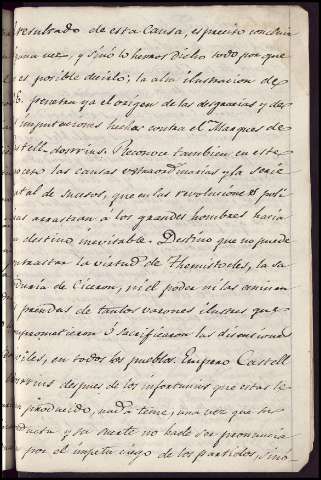 resultado de esta Causa, es preciso concluir
una vez, y sinó lo hemos dicho todo por que
es posible decirlo; la alta ilustracion de
E. penetra ya el origen de las desgracias y de
imputaciones hechas contra el Marques de
tell-dosrrius. Reconoce tambien en este
las causas extraordinarias y la serie
atal de sucesos, que en las revoluciones polí
as arrastran á los grandes hombres hacia
destino inevitable. Destino que no puede
ntrastar la virtud de Themistocles, la sa
duria de Ciceron, ni el poder ni las
prendas de tantos varones ilustres que
mprometieron ó sacrificaron las disenciones
iviles, en todos los pueblos. Empero Castell
osrrius despues de los infortunios que estas le
an producido, nada teme, una vez que su
nducta y su suerte no ha de ser pronuncia
por el impetu ciego de los partidos, sinó